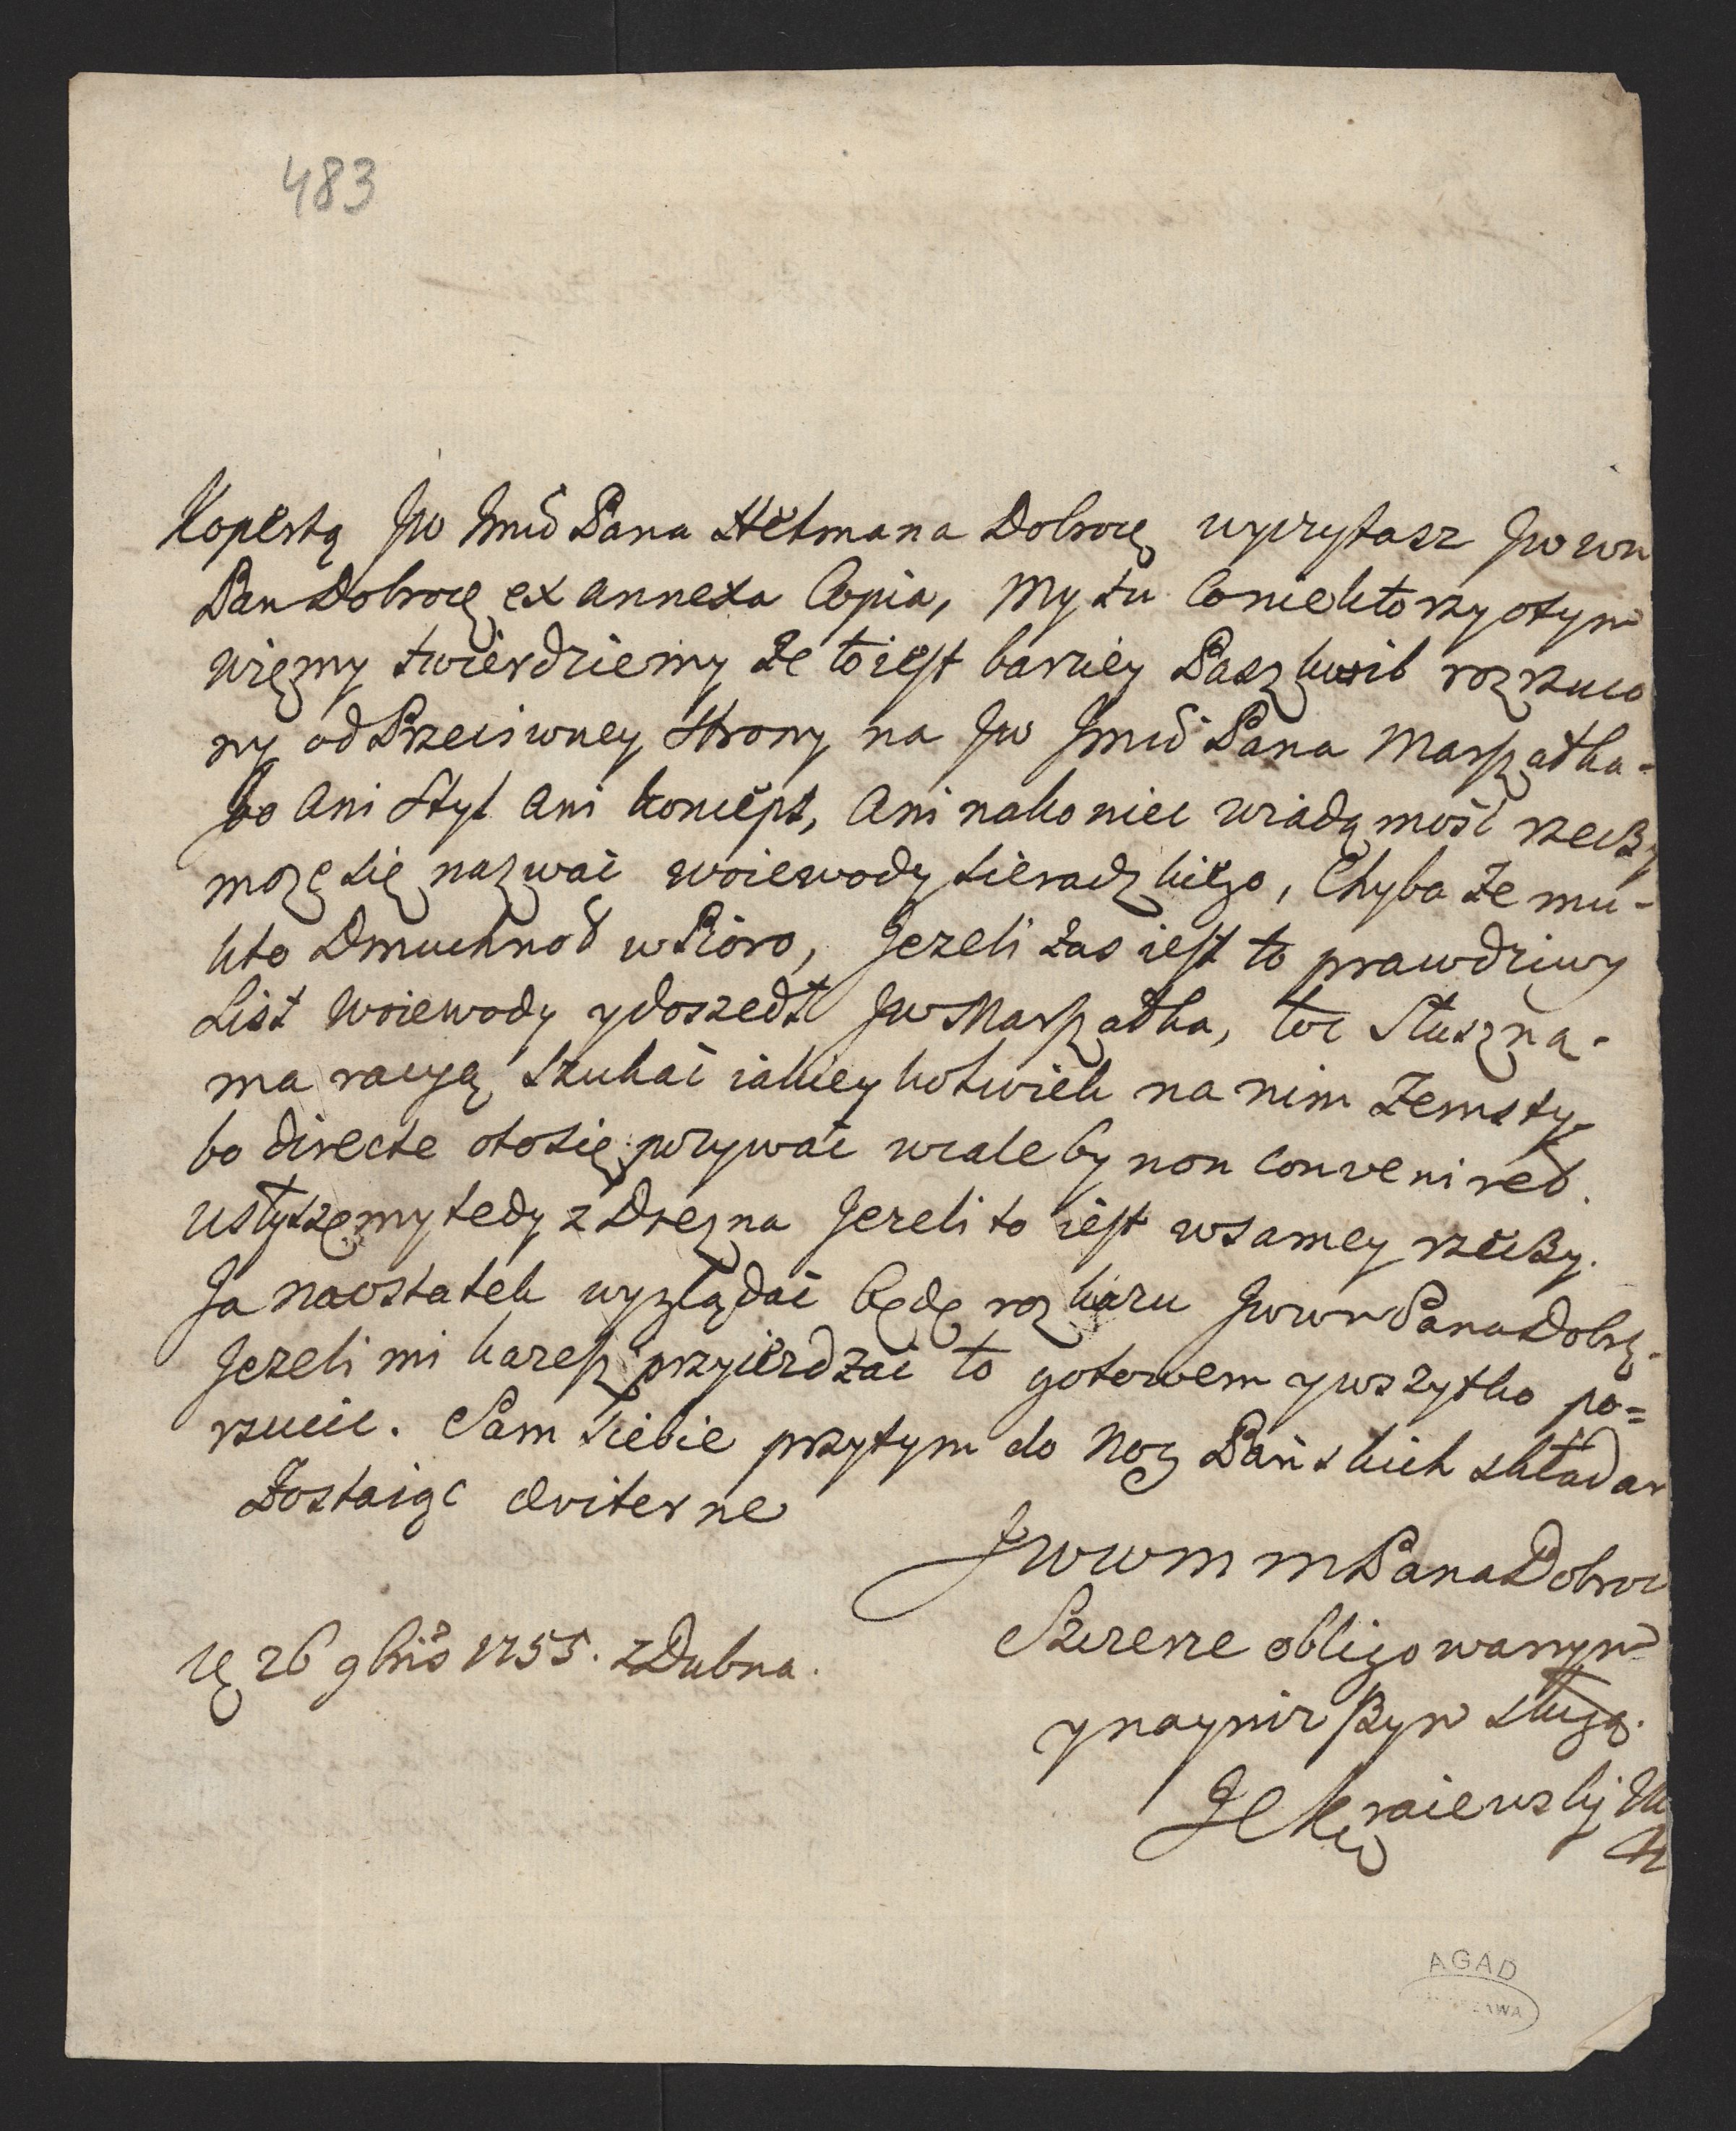 483
Kopertą Jw Jmći Pana Hetmana Dobroc̃ wyczytasz Jw wm
Pan Dobroc̃ ex annexa Copia, My tu co niektorzy o tym
więmy twierdziemy że to iest barziey Paszkwil rozrzuco
ny od Przeciwney strony na Jw Jmći Pana Marszałka.
bo ani Styl ani koncept, ani nakoniec wiadomość rzeczy
może się nazwać woiewody sieradzkiego, Chyba że mu-
kto Dmuchnoł w Pióro, Jezeli zas iest to prawdziwy
List Woiewody y doszedł Jw Marszałka, toć Słuszną.
ma racyą szukać iakieykolwiek na nim zemsty.
bo directe oto się porywać wcale by non conveniret.
usłyszemy tedy z Drezna Jezeli to iest w samey rzeczy.
Ja naostatek wyglądać będę rozkazu Jwwm Pana Dobr̃.
Jezeli mi każesz przyieżdzać to gotowem y wszytko po=
rzucić. Sam siebie przytym do Nog Pańskich składam
Zostaiąc æviterne
Jwwm m Pana Dobroc
Szczerze obligowanym
y naynizszym sługą.
J Kraiewsky
26 9bris 1755. z Dubna.
AGAD
WARSZAWA